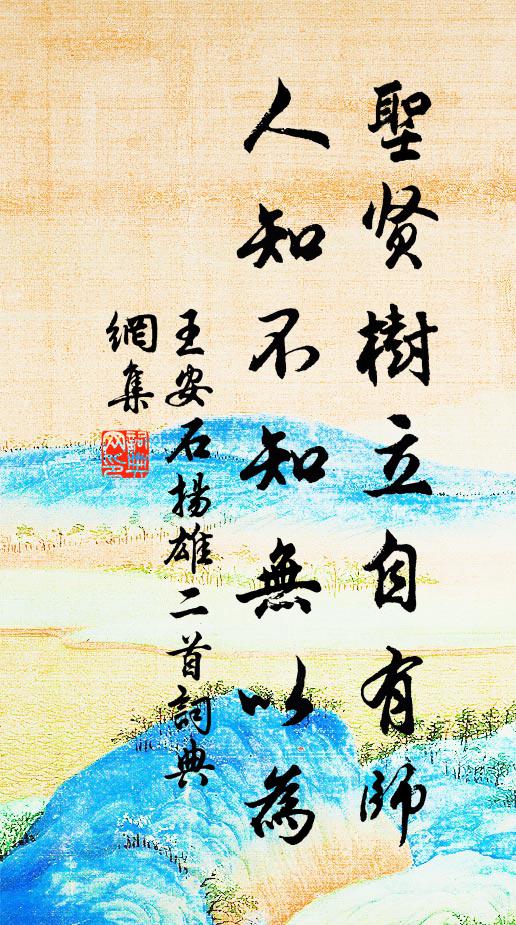 聖贤樹立自有師
人知不知無以為
王安石揚雄二首詞典
網集